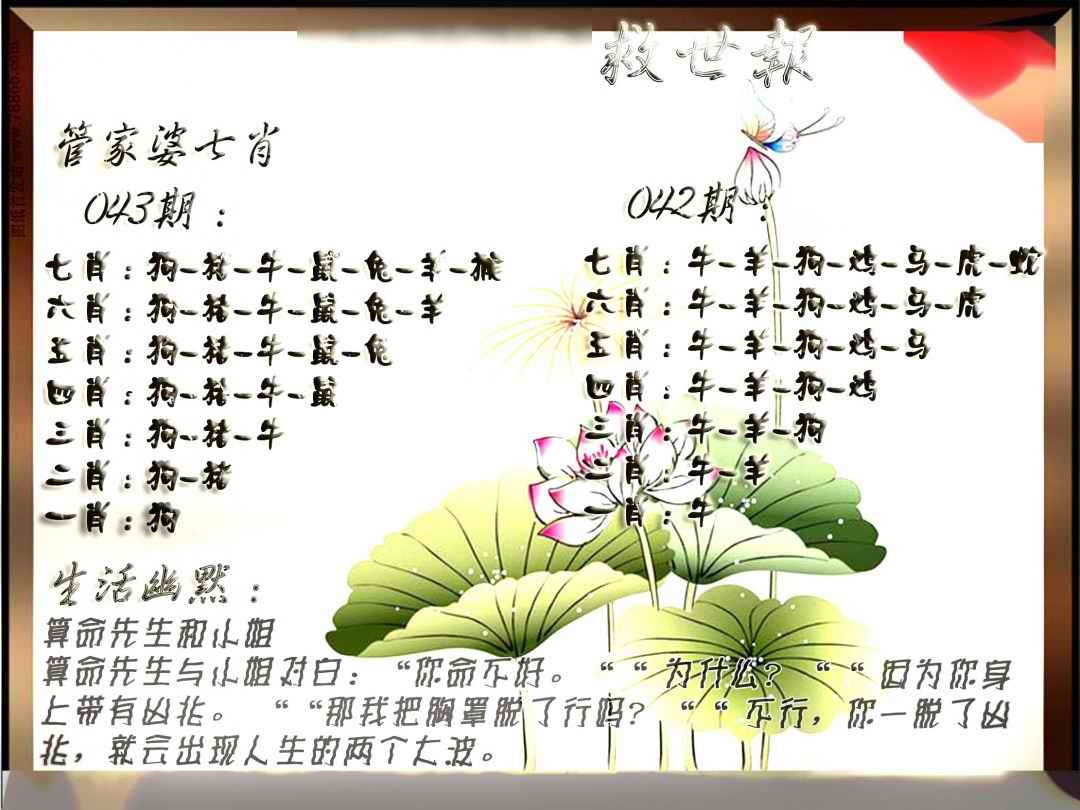 救世報
管家婆七肖
043期：
七肖：狗-猪-牛-鼠-兔-羊-猴
六肖：狗-猪-牛-鼠-兔-羊
五肖：狗-猪-牛-鼠-兔
四肖：狗-猪-牛-鼠
三肖：狗-猪-牛
二肖：狗-猪
一肖：狗
042期：
七肖：牛-羊-狗-鸡-马-虎-蛇
六肖：牛-羊-狗-鸡-马-虎
五肖：牛-羊-狗-鸡-马
四肖：牛-羊-狗-鸡
三肖：牛-羊-狗
二肖：牛-羊
一肖：牛
生活幽默：
算命先生和小姐
算命先生与小姐对白：“你命不好。““为什么？““因为你身
上带有凶兆。““那我把胸罩脱了行吗？““不行，你一脱了凶
兆，就会出现人生的两个大波。